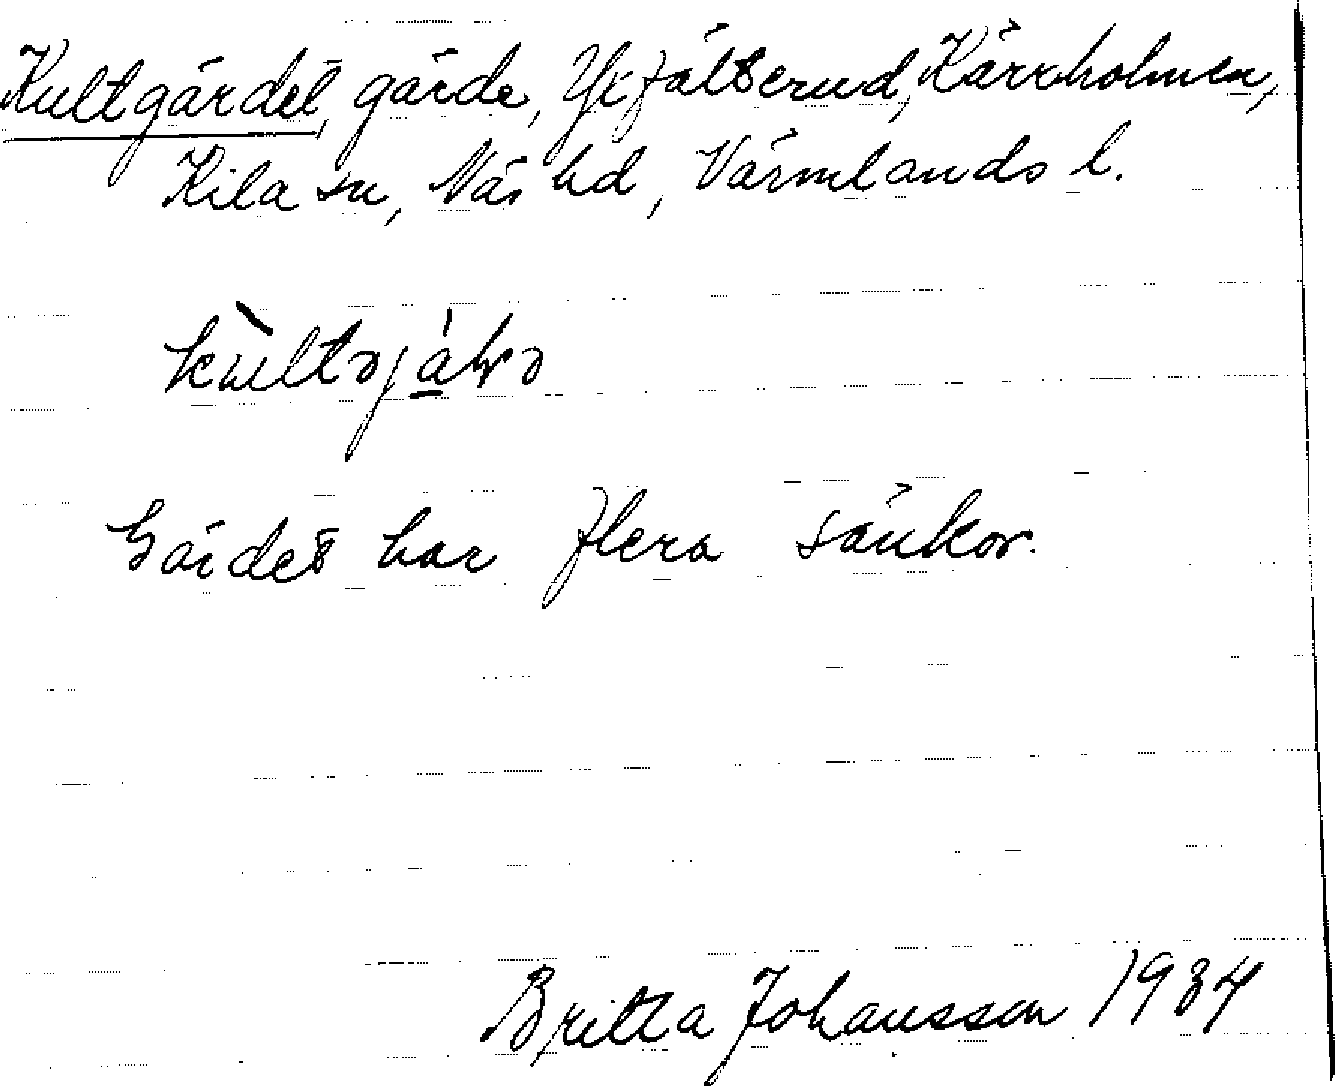 Kultgärdet, gärde, Yt fältserud, Kärrholmen,
Kila sn, Näs hd, Värmlands l.
Gärdet har flera sänkor.
Britta Johansson 1934